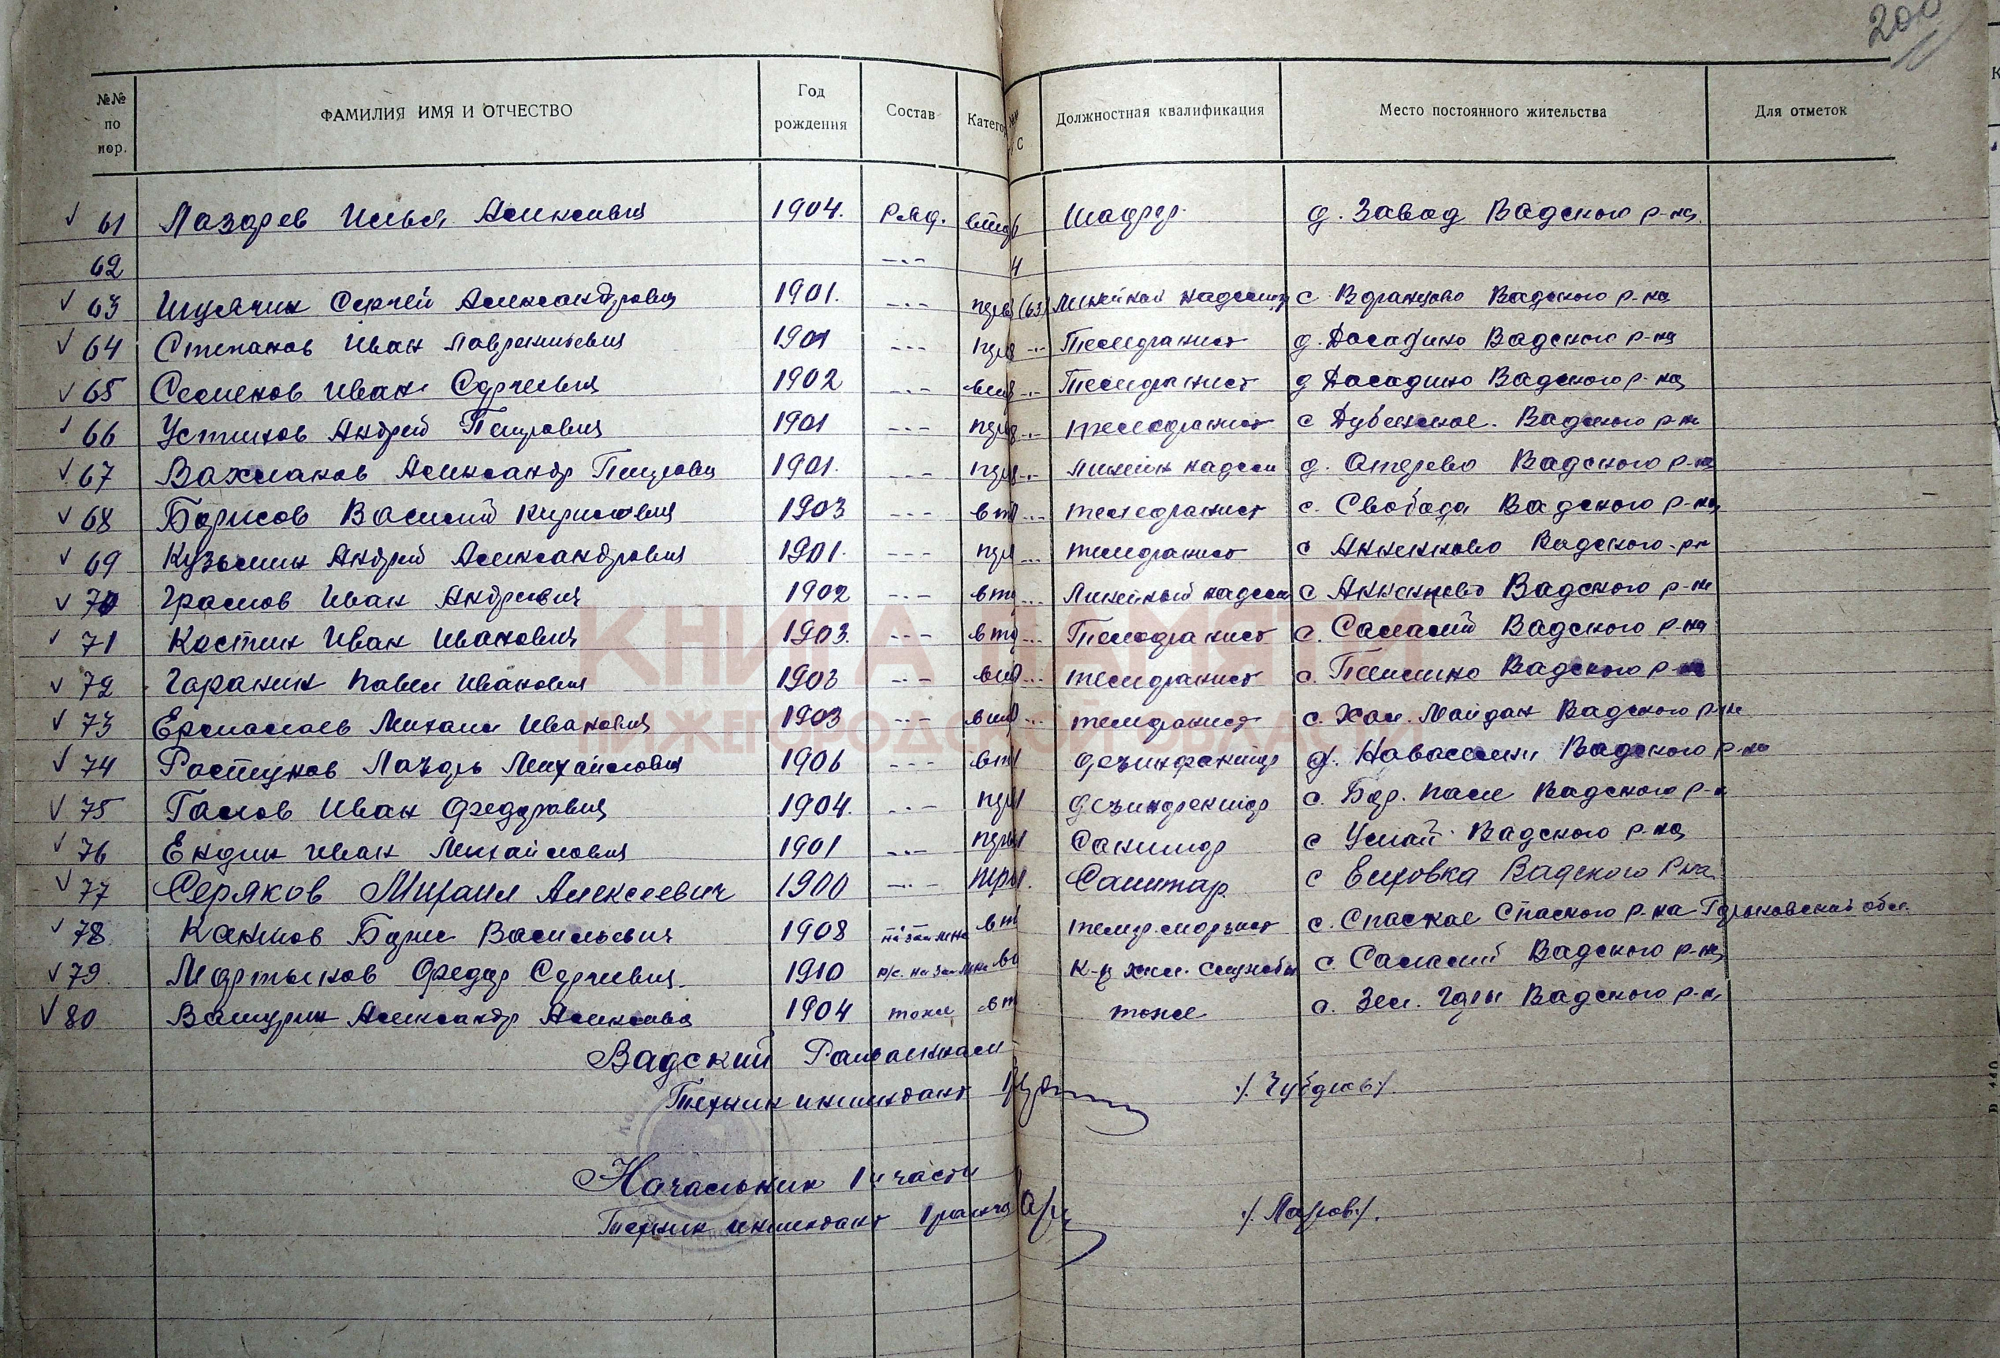 200
№№ по пор. ФАМИЛИЯ ИМЯ И ОТЧЕСТВО Год рождения Состав Катего С Должностная квалификация Место постоянного жительства Для отметок
61 Лазарев Илья Алексеевич 1904. Ряд. втор Шофер д. Завод Вадского р-на.
62 -"-
63 Сергей Александрович 1901. -"- перв (63) Линейный надсмотр с. Вадского р-на
64 Степанов Иван Лаврентьевич 1901 -"- перв -"- Телеграфист д. Досадино Вадского р-на
65 Семенов Иван Сергеевич 1902 -"- втор -"- Телеграфист д Досадино Вадского р-на
66 Устинов Андрей Петрович 1901 -"- перв -"- телеграфист с Дубенское. Вадского р-н
67 Вахланов Александр Петрович 1901. -"- перв -"- линейн надсм д. Отерево Вадского р-на
68 Борисов Василий Кириллович 1903 -"- вт -"- телеграфист с. Свобода Вадского р-на
69 Кузьмин Андрей Александрович 1901. -"- пер -"- телеграфист с Анненково Вадского р-н
70 Громов Иван Андреевич 1902 -"- вто -"- Линейный надсм с Анненково Вадского р-н
71 Костин Иван Иванович 1903. -"- вто -"- Телеграфист с. Салалей Вадского р-на
72 Гаранин Павел Иванович 1903 -"- вто -"- телеграфист с. Пелино Вадского р-на
73 Ермолаев Михаил Иванович 1903 -"- вто -"- телеграфист с. Хол. Майдан Вадского р-н
74 Лазарь Михайлович 1906 -"- вто дезинфектор д. Вадского р-на
75 Иван Федорович 1904. -"- пер дезинфектор с. Бер. Пол Вадского р-н
76 Ендин Иван Михайлович 1901 -"- перв Санитар с Умай Вадского р-на
77 Серяков Михаил Алексеевич 1900 -"- пер. Санитар с Елховка Вадского р-на
78 Борис Васильевич 1908 вт с. Спаское Спаского р-на Горьковской обл.
79 Мартынов Федор Сергеевич. 1910 вт К-р хим. службы с. Салалей Вадского р-на
80 Вашурин Александр Алексеев 1904 тоже вт тоже с. Зел. Горы Вадского р-н
Вадский Райвоенком
Техник интендант /. Чубаров ./
Начальник 1 й части
Техник интендант 1 ранга /. Лавров ./.
КНИГА ПАМЯТИ
НИЖЕГОРОДСКОЙ ОБЛАСТИ